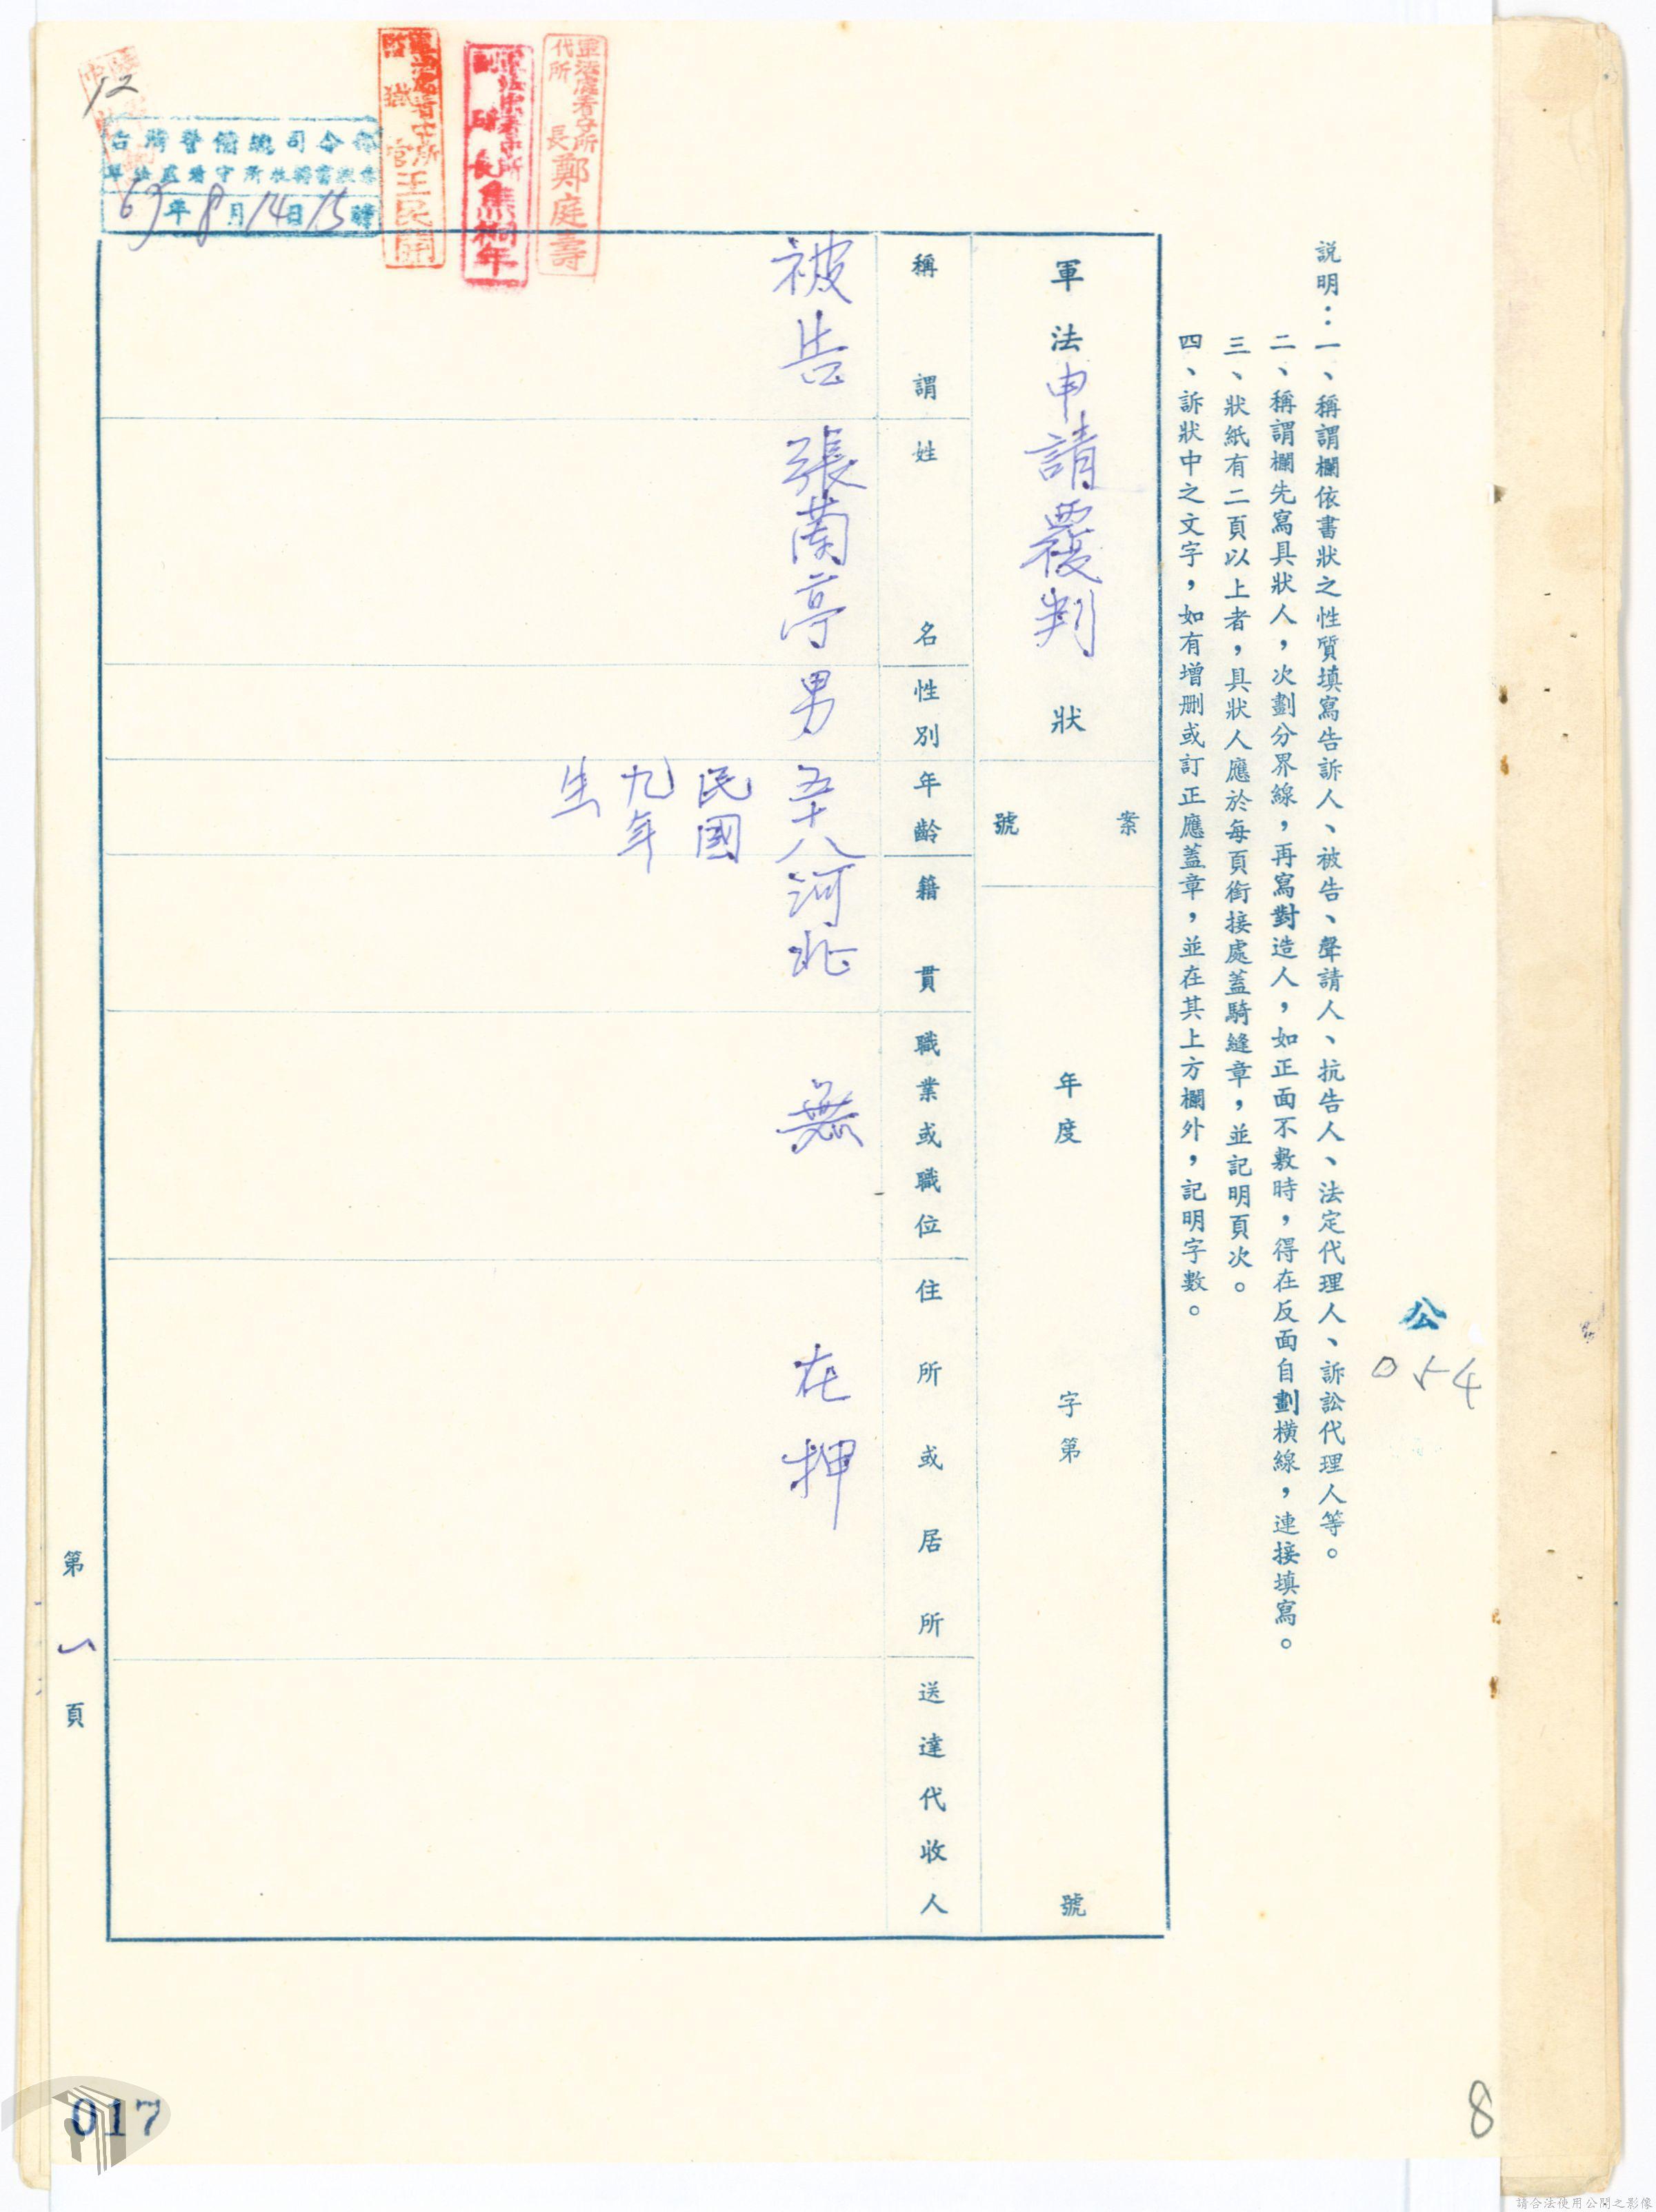 說明：一、稱謂欄依書狀之性質填寫告訴人、被告、聲請人、抗告人、法定代理人、訴訟代理人等。
二、稱謂欄先寫具狀人，次劃分界線，再寫對造人，如正面不敷時，得在反面自劃橫線，連接填寫。
三、狀紙有二頁以上者，具狀人應於每頁銜接處蓋騎縫章，並記明頁次。
四、訴狀中之文字，如有增刪或訂正應蓋章，並在其上方欄外，記明字數。
公
054
軍法申請覆判狀
案號
年度 字第 號
稱謂
姓名
性別
年齡
籍貫
職業或職位
住所或居所
送達代收人
被告
張蘭亭
男
五十八
民國
九年
生
河北
無
在押
軍法處看守所
代所長鄭庭壽
軍法處看守所
長焦桐年
軍法處看守所
官王民開
台灣警備總司令部
軍法處看守所
69年8月14日15時
12
第一頁
017
8
請合法使用公開之影像